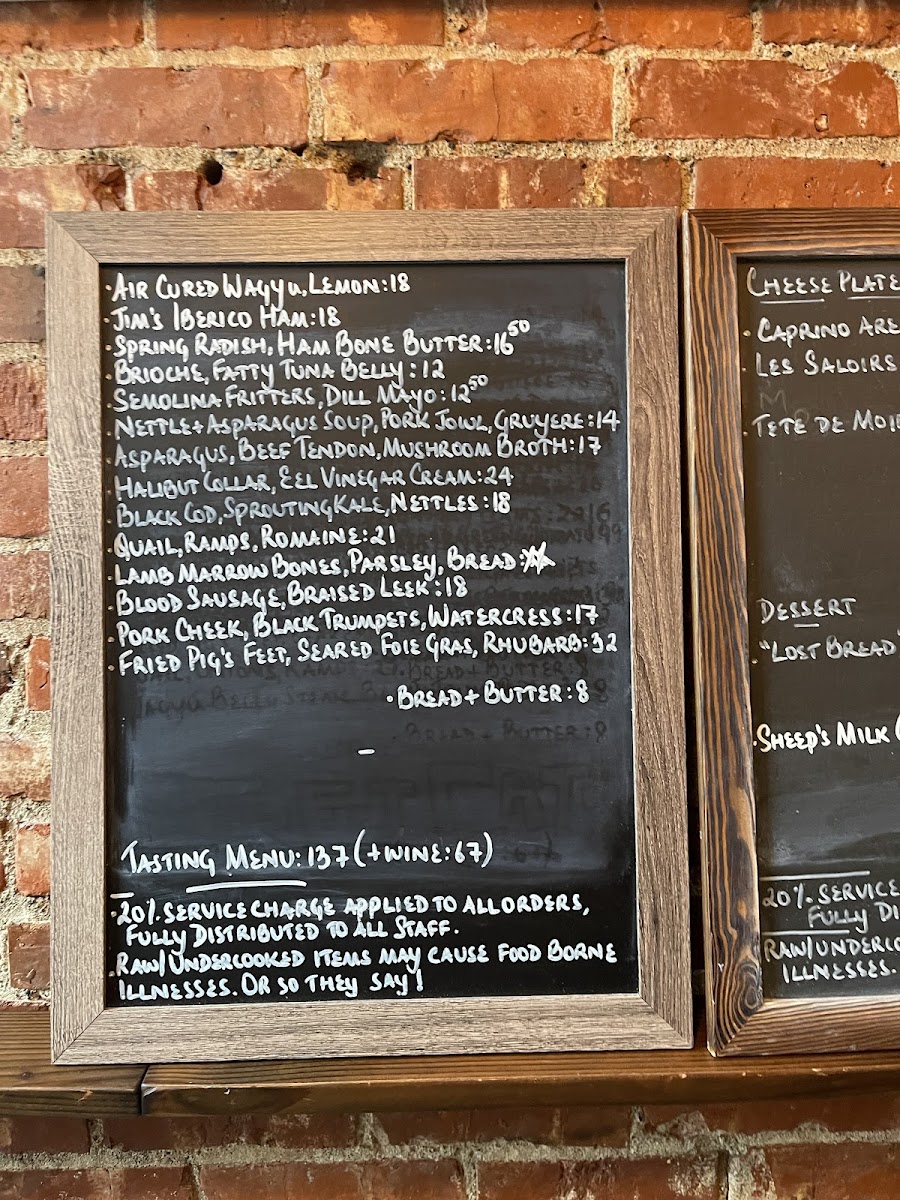 ·Air Cured Wagyu, Lemon:18
·Jim's Iberico Ham:18
·Spring Radish, Ham Bone Butter:16⁵⁰
·Brioche, Fatty Tuna Belly:12
·Semolina Fritters, Dill Mayo:12⁵⁰
·Nettle+Asparagus Soup, Pork Jowl, Gruyere:14
·Asparagus, Beef Tendon, Mushroom Broth:17
·Halibut Collar, Eel Vinegar Cream:24
·Black Cod, Sprouting Kale, Nettles:18
·Quail, Ramps, Romaine:21
·Lamb Marrow Bones, Parsley, Bread:
·Blood Sausage, Braised Leek:18
·Pork Cheek, Black Trumpets, Watercress:17
·Fried Pig's Feet, Seared Foie Gras, Rhubarb:32
·Bread+Butter:8
Tasting Menu: 137 (+wine:67)
·20% service charge applied to all orders,
fully distributed to all staff.
·Raw/Undercooked items may cause food borne
illnesses. Or so they say!
Cheese Plate
·Caprino
·Les Saloirs
·Tete de
Dessert
·"Lost Bread"
·Sheep's Milk (
20% service
fully
Raw/
illnesses.